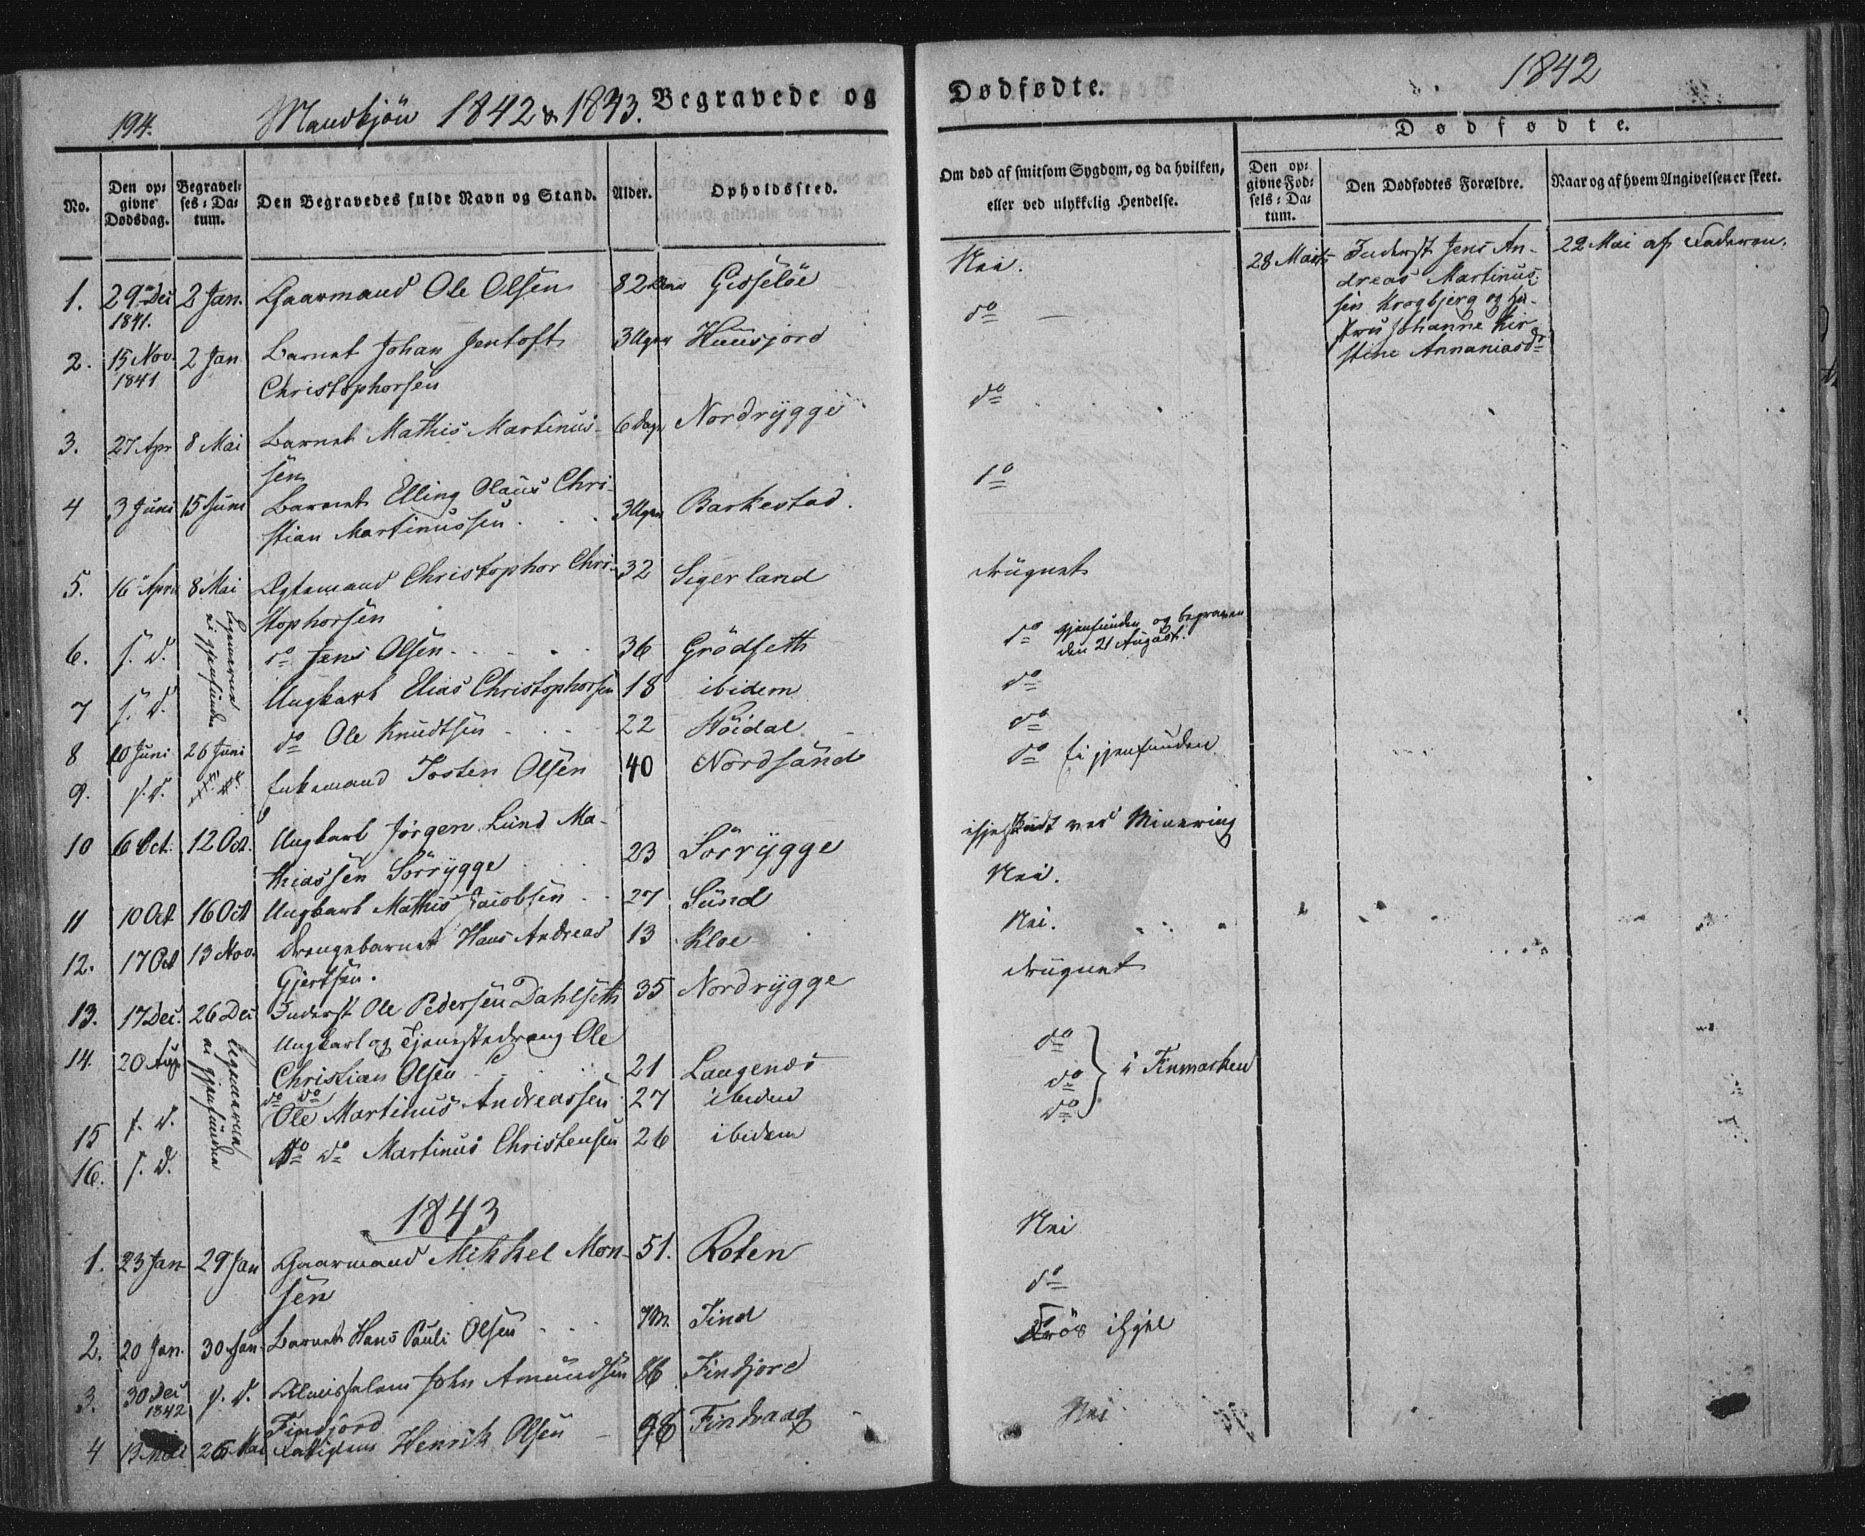 194. Mandkjön 1842 & 1843. Begravede og
No.
Den opgivne Dødsdag.
Begravelses-Datum.
Den Begravedes fulde Navn og Stand.
Alder.
Opholdssted.
1. 29 Dec 1841. 2 Jan. Gaarmand Ole Olsen 82 Gisselöe
2. 15 Nov. 1841 2 Jan Barnet Johan Jentoft 3 Uger Huusjord
Christophersen
3. 27 Apr 8 Mai Barnet Mathis Martinus- 6 Dage Nordrygge
sen
4 3 Juni 15 Juni Barnet Elling Olaus Chri- 3 Uger Barkestad.
stian Martinussen
5. 16 April 8 Mai Ægtemand Christophor Chri- 32 Sigerland
stophorsen
Legemerne ei gjenfundne
6. s. D. do Jens Olsen 36 Grödseth
7 s. D. Ungkarl Elias Christophorsen 18 ibidem
8 10 Juni 26 Juni do Ole Knudtsen 22 Höidal
9. s. D. Enkemand Tosten Olsen 40 Nordsand
10 6 Oct. 12 Oct. Ungkarl Jörgen Lund Ma-
thiassen Sörrygge 23 Sörrygge
11 10 Oct 16 Oct Ungkarl Mathis Jacobsen 27 Sund
12. 17 Oct 13 Nov. Drengebarnet Hans Andreas 13 Kloe
Gjertsen.
13. 17 Dec. 26 Dec Inderst Ole Pedersen Dahlseth 35 Nordrygge
14. 20 Aug Ungkarl og Tjenestedreng Ole
Christian Olsen 21 Langenes
Legemerne ei gjenfundne
15 s. D. do do Ole Martinus Andreassen 27 ibidem
16. s. D. do do Martinus Christensen 26 ibidem
1843
1. 23 Jan 29 Jan Gaarmand Mikkel Mon- 51. Roten
sen
2. 20 Jan. 30 Jan Barnet Hans Pauli Olsen 7 M. Tind
3. 30 Dec 1842 s. D. John Amundsen 86 Findjord
Findjord
4 13 26 Mai Henrik Olsen 98 Tindvaag
Dødfødte. 1842
Om død af smitsom Sygdom, og da hvilken, eller ved ulykkelig Hendelse.
Dødfødte.
Den opgivne Fødsels-Datum.
Den Dødfødtes Forældre.
Naar og af hvem Angivelsen er skeet.
Nei. 28 Marts Inderst Jens An- 22 Mai af Faderen.
dreas Martinus-
sen Krogbjerg og Hu-
stru Johanne Kir-
stine Annaniasdr
do
do
do
druknet
do gjenfunden og begraven
den 21 August.
do
do
do Ei gjenfunden
ihjelskudt ved Minering
Nei.
Nei.
druknet
do
do i Finmarken
do
Nei
do
Frös ihjel
Nei